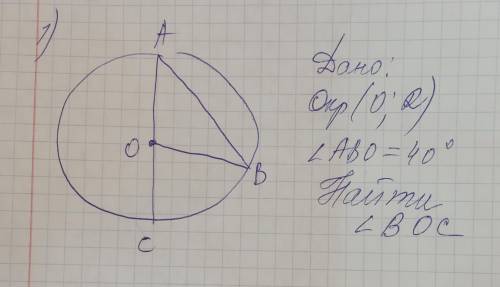 1)
A
O
B
C
Дано:
Окр (O; R)
∠ABO = 40°
Найти
∠BOC